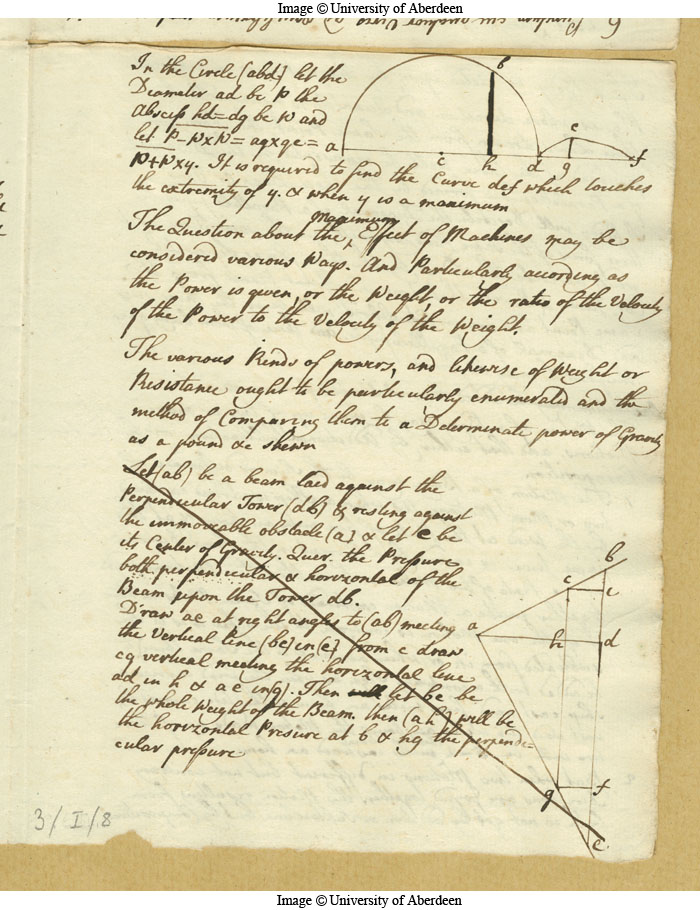 Image © University of Aberdeen
6
In the Circle (abd) let the
Diameter ad be p the
Absciss hd=dg be p and
let p-p×p = ag×ge =
p+p×y. It is required to find the Curve def which touches
the extremity of y. & when y is a maximum
b
a
c
h
d
e
g
f
The Question about the Maximum Effect of Machines may be
considered various Ways. And Particularly according as
the Power is given, or the Weight, or the ratio of the Velocity
of the Power to the Velocity of the Weight.
The various Kinds of powers, and likewise of Weight or
Resistance ought to be particularly enumerated and the
method of Comparing them to a Determinate power of Gravity
as a pound &c shewn
Let (ab) be a beam laid against the
Perpendicular Tower (db) & resting against
the immoveable obstacle (a) & let c be
its Center of Gravity. Quer. the Pressure
both perpendicular & horizontal of the
Beam upon the Tower db.
Draw ae at right angles to (ab) meeting
the Vertical line (be) in (e) from c draw
cg vertical meeting the horizontal line
ad in h & ae in (g). Then let be be
the whole Weight of the Beam. then (ah) will be
the horizontal Presure at b & hg the perpendi=
cular pressure
b
c
a
h
d
g
f
e
3/I/8
Image © University of Aberdeen